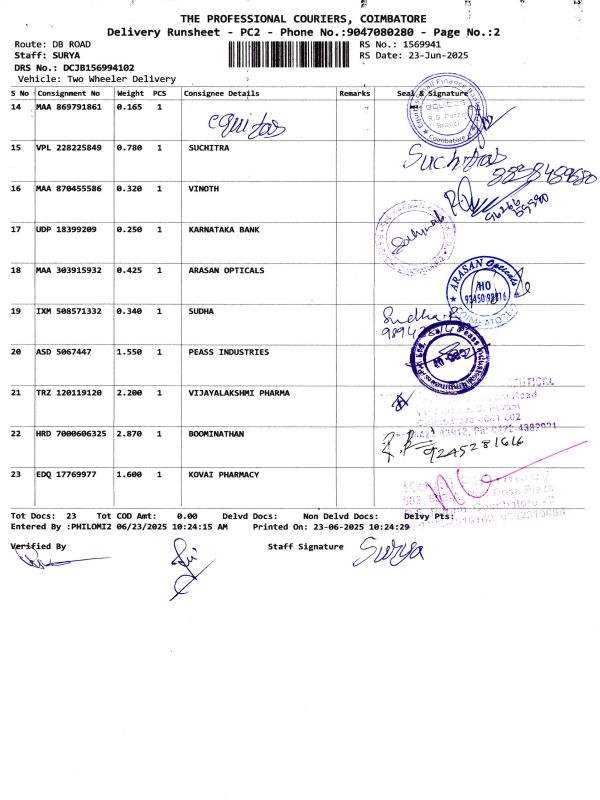 THE PROFESSIONAL COURIERS, COIMBATORE
Delivery Runsheet - PC2 - Phone No.:9047080280 - Page No.:2
Route: DB ROAD RS No.: 1569941
Staff: SURYA RS Date: 23-Jun-2025
DRS No.: DCJB156994102
Vehicle: Two Wheeler Delivery
S No Consignment No Weight PCS Consignee Details Remarks Seal & Signature
14 MAA 869791861 0.165 1 equitas
equitas
R.S. Puram
Branch
Coimbatore
15 VPL 228225849 0.780 1 SUCHITRA Suchitra
16 MAA 870455586 0.320 1 VINOTH
96266
59590
17 UDP 18399209 0.250 1 KARNATAKA BANK
18 MAA 303915932 0.425 1 ARASAN OPTICALS
ARASAN Opticals
HO
93450-98916
COIMBATORE-2
19 IXM 508571332 0.340 1 SUDHA Sudha.R
20 ASD 5067447 1.550 1 PEASS INDUSTRIES
21 TRZ 120119120 2.200 1 VIJAYALAKSHMI PHARMA
22 HRD 7000606325 2.870 1 BOOMINATHAN
9245281616
23 EDQ 17769977 1.600 1 KOVAI PHARMACY
Tot Docs: 23 Tot COD Amt: 0.00 Delvd Docs: Non Delvd Docs: Delvy Pts:
Entered By :PHILOMI2 06/23/2025 10:24:15 AM Printed On: 23-06-2025 10:24:29
Verified By Staff Signature Surya